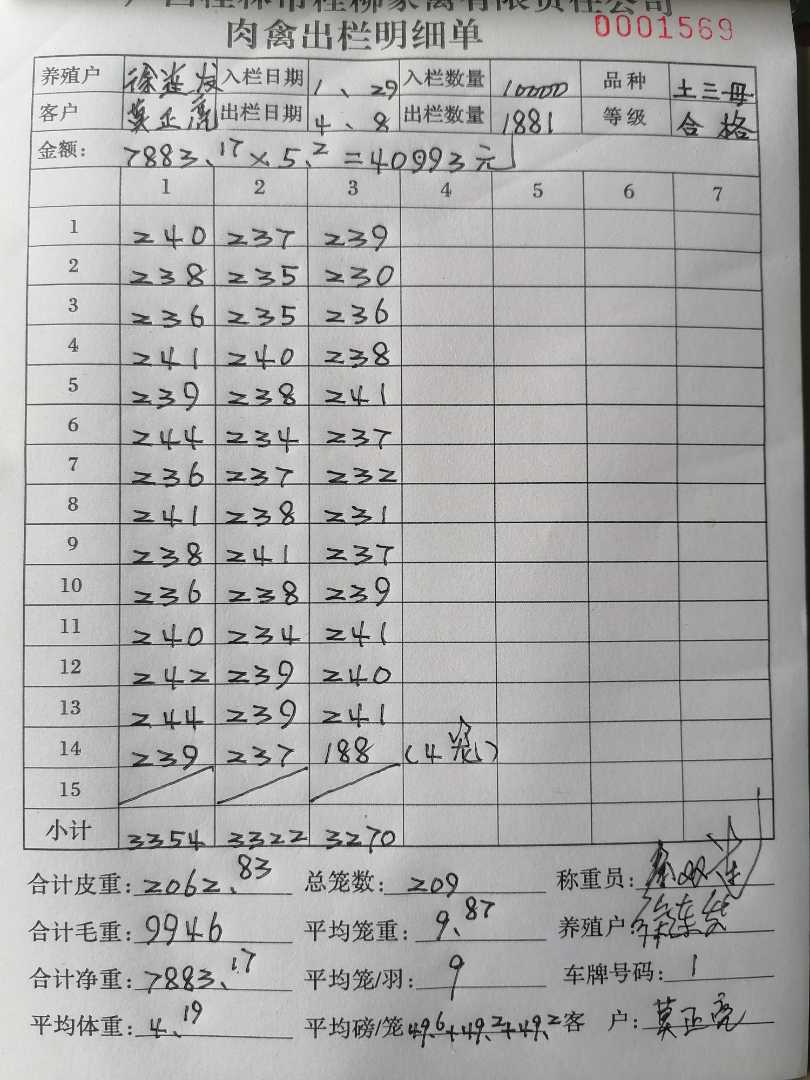 广西桂林市桂柳家禽有限责任公司
肉禽出栏明细单 0001569
养殖户 徐连发 入栏日期 1、29 入栏数量 10000 品种 土三母
客户 莫正亮 出栏日期 4、8 出栏数量 1881 等级 合格
金额: 7883.17×5.2=40993元
1 2 3 4 5 6 7
1 240 237 239
2 238 235 230
3 236 235 236
4 241 240 238
5 239 238 241
6 244 234 237
7 236 237 232
8 241 238 231
9 238 241 237
10 236 238 239
11 240 234 241
12 242 239 240
13 244 239 241
14 239 237 188 (4笼)
15
小计 3354 3322 3270
合计皮重: 2062.83 总笼数: 209 称重员:
合计毛重: 9946 平均笼重: 9.87 养殖户:
合计净重: 7883.17 平均笼/羽: 9 车牌号码: 1
平均体重: 4.19 平均磅/笼 49.6+49.2+49.2 客 户: 莫正亮